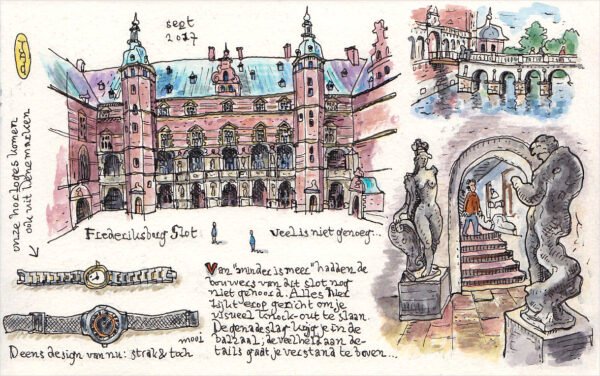 sept
2017
onze horloges komen
ook uit Denemarken
Frederiksburg Slot
veel is niet genoeg...
Van "minder is meer" hadden de
bouwers van dit slot nog
niet gehoord. Alles hier
lijkt erop gericht om je
visueel knock-out te slaan.
De genadeslag krijg je in de
balzaal; de veelheid aan de-
tails gaat je verstand te boven...
Deens design van nu: strak & toch
mooi